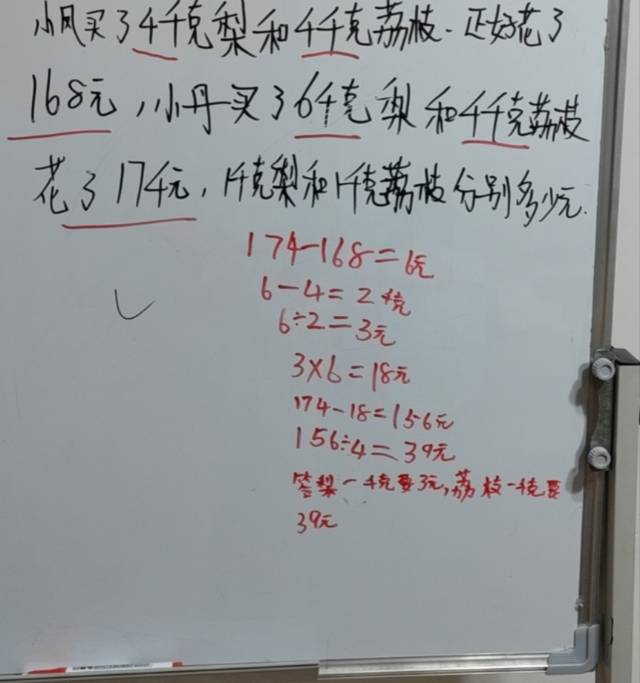 小凤买了4千克梨和4千克荔枝.正好花了
168元,小丹买了6千克梨和4千克荔枝
花了174元,1千克梨和1千克荔枝分别多少元.
174-168=6元
6-4=2千克
6÷2=3元
3×6=18元
174-18=156元
156÷4=39元
答梨一千克要3元,荔枝一千克要
39元